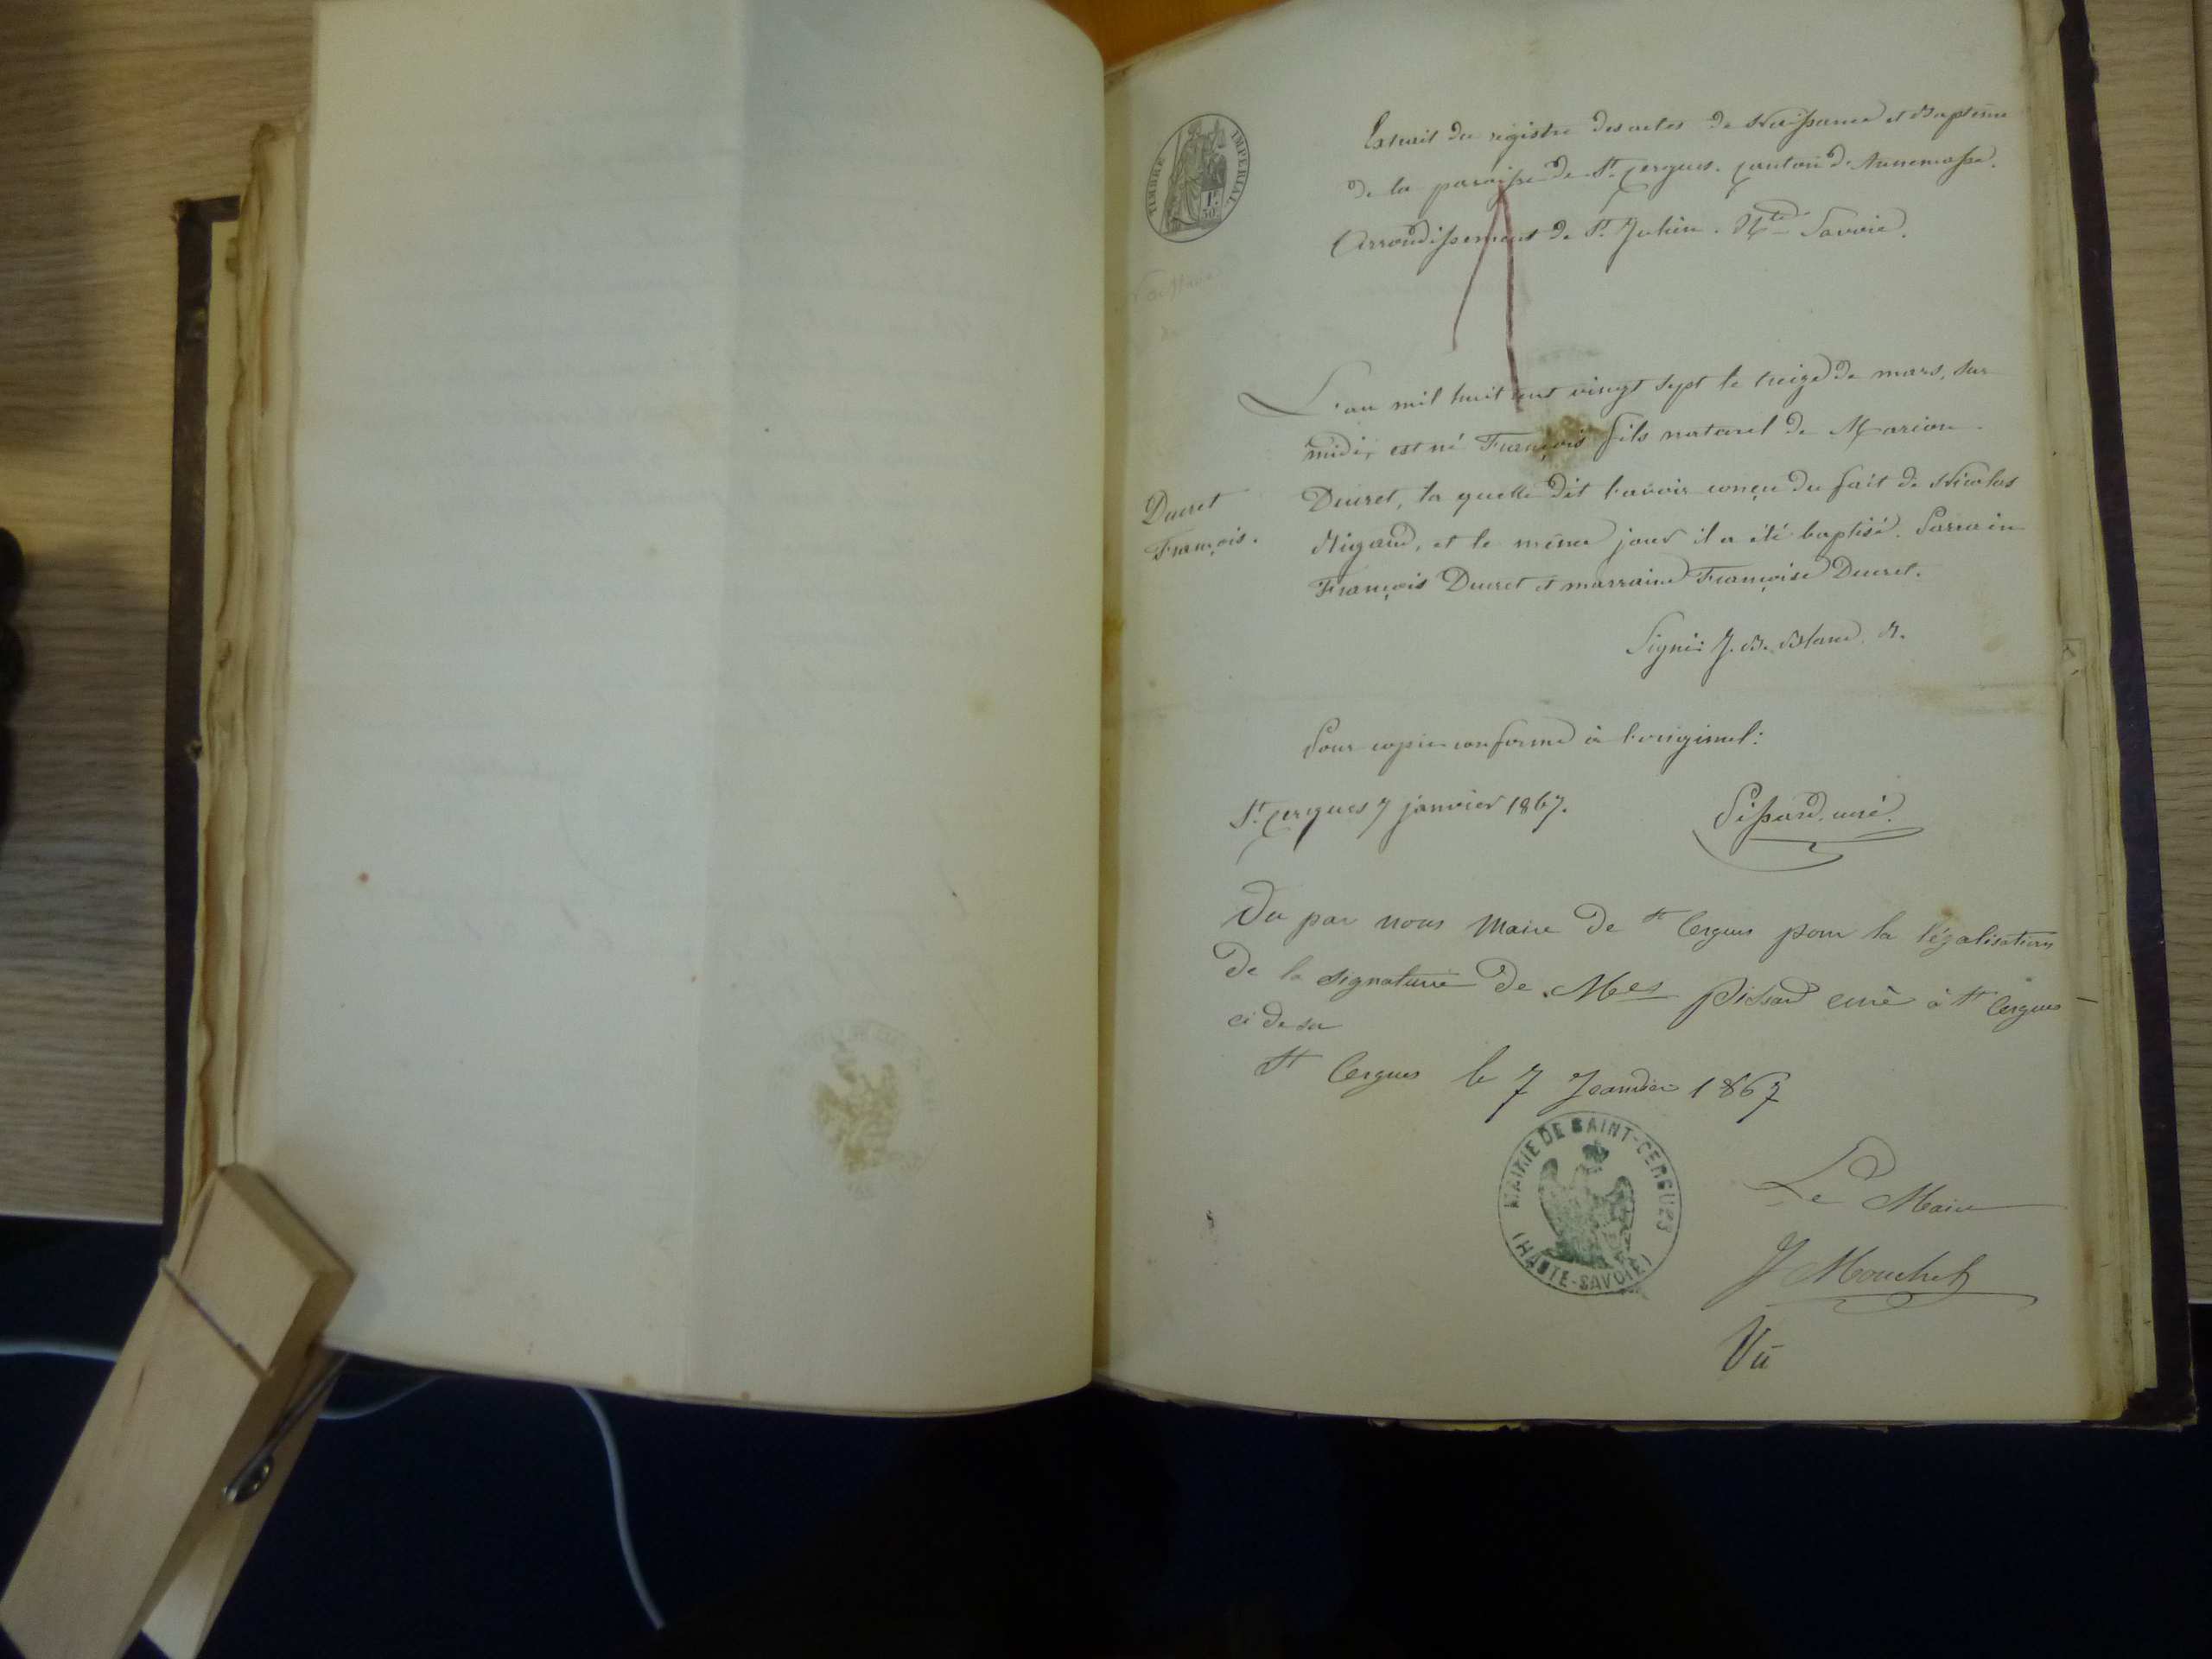 TIMBRE IMPERIAL
1f.
50
Extrait du registre des actes de Naissance et Baptême
de la paroisse de St. Cergues. Canton de Annemasse.
Arrondissement de St. Julien. Hte Savoie.
L'an mil huit cent vingt sept le treize de mars, sur
midi, est né François fils naturel de Marion
Ducret, la quelle dit l'avoir conçu du fait de Nicolas
et le même jour il a été baptisé. Parrain
François Ducret et marraine Françoise Ducret.
Ducret
François.
Signé: J. B.
Pour copie conforme à l'original:
St. Cergues 7 janvier 1867.
Pissard, curé.
Vu par nous Maire de St Cergues pour la légalisation
De la signature De Pissard curé à St Cergues
ci desu
St Cergues le 7 Jeanvier 1867
MAIRIE DE SAINT-CERGUES
(HAUTE-SAVOIE)
Le Maire
J Mouchet
Vu